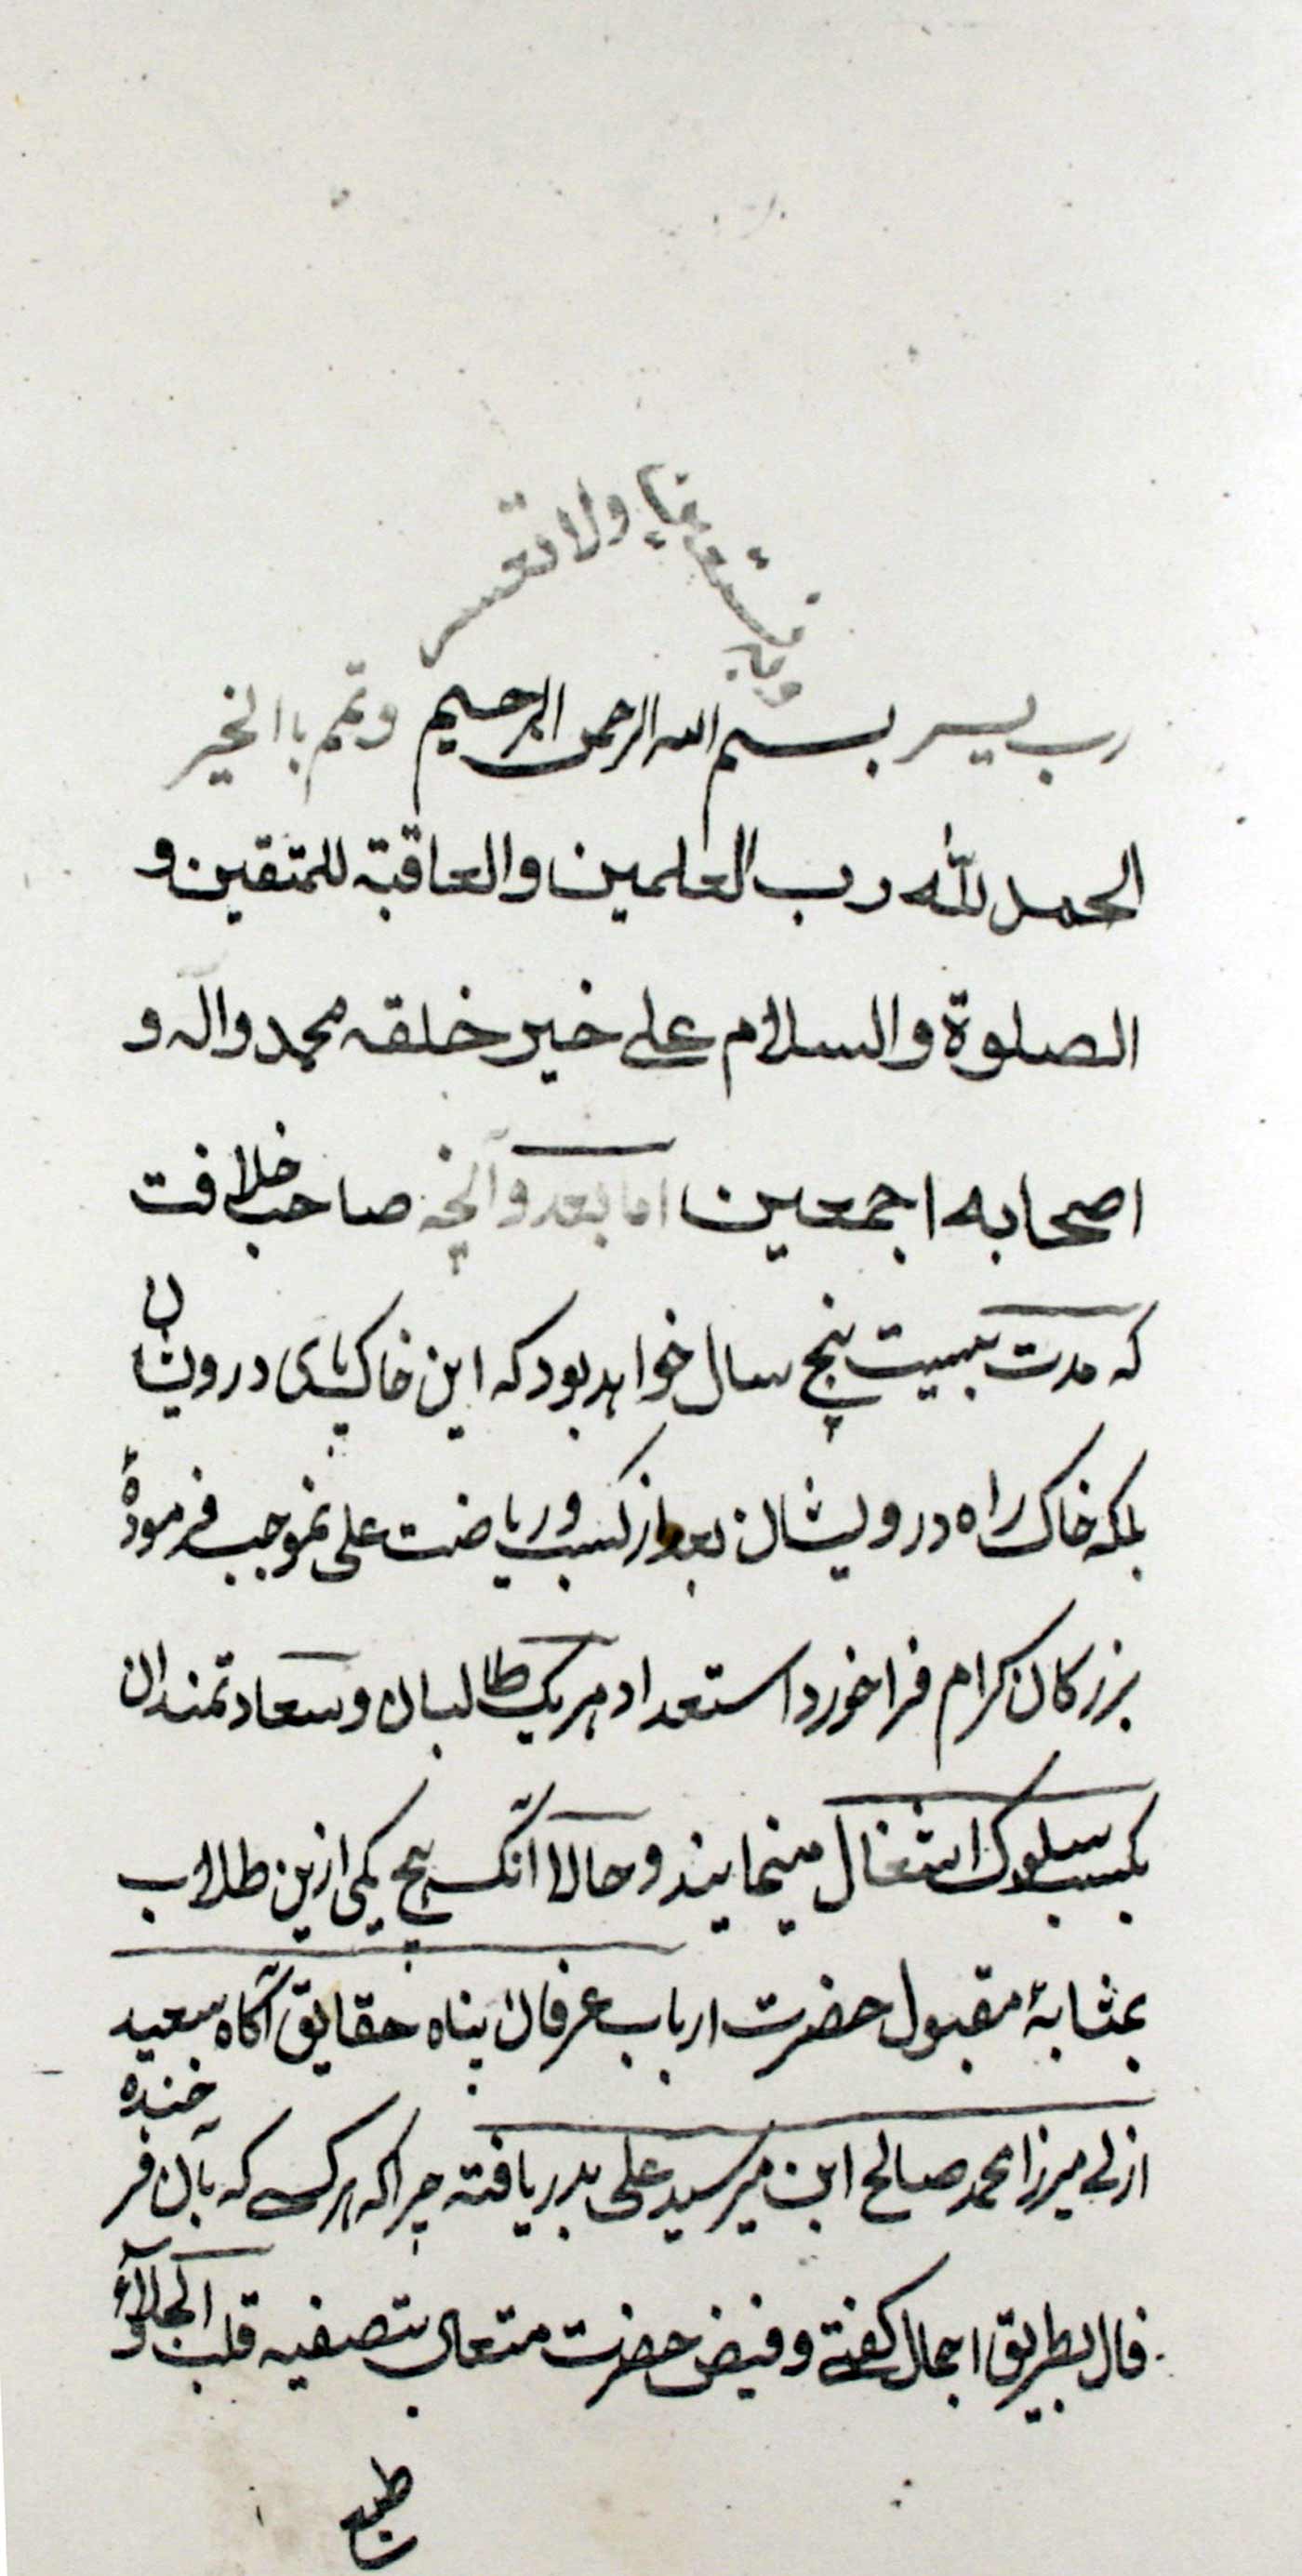 وبه نستعين ولا تعسر
رب يسر بسم الله الرحمن الرحيم وتمم باالخير
الحمد لله رب العلمين والعاقبة للمتقين و
الصلوة والسلام على خير خلقه محمد واله و
اصحابه اجمعين اما بعد وآنچه صاحب خلافت
که مدت بیست پنج سال خواهد بود که این خاکپای درویشان
بلکه خاک راه درویشان بعد از کسب و ریاضت علی نموجب فرمودهٔ
بزرکان کرام فراخورد استعداد هریک طالبان و سعادتمندان
بکسب سلوک اشتغال مینمایند و حالا آنکه هیچ یکی ازین طلاب
بمثابهٔ مقبول حضرت ارباب عرفان پناه حقایق آکاه سعید
ازلی میرزا محمد صالح ابن میر سید علی بدر یافته چرا که هر کسے که بآن فر
خنده
فال بطریق اجمال کفتے و فیض حضرت متعال بتصفیه قلب
طبع